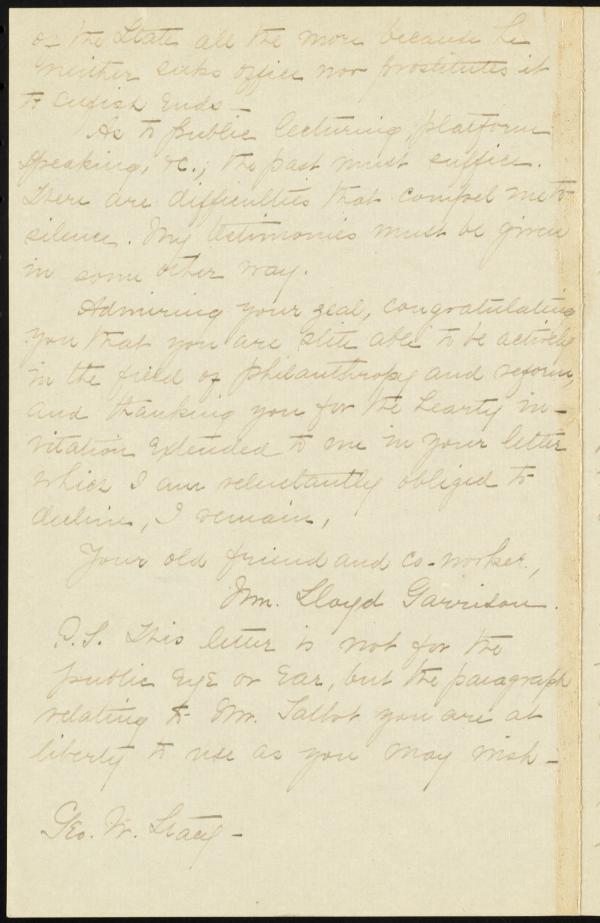 of the State all the more because he
neither seeks office nor prostitutes it
to selfish ends –
As to public lecturing, platform
speaking, &c., the past must suffice.
There are difficulties that compel me to
silence. My testimonies must be given
in some other way.
Admiring your zeal, congratulating
you that you are still able to be actively
in the field of philanthropy and reform,
and thanking you for the hearty in-
vitation extended to me in your letter
which I am reluctantly obliged to
decline, I remain,
Your old friend and co-worker,
Wm. Lloyd Garrison.
P.S. This letter is not for the
public eye or ear, but the paragraph
relating to Mr. Talbot you are at
liberty to use as you may wish –
Geo. W. Stacy –